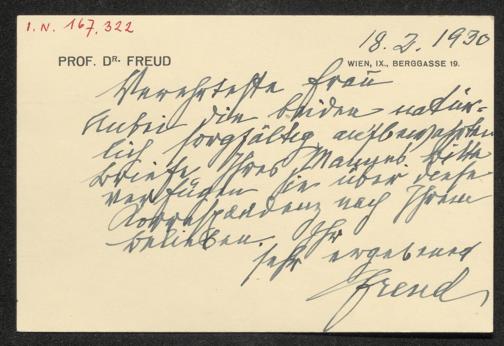 I.N. 167.322
18.2.1930
PROF. DR. FREUD
WIEN, IX., BERGGASSE 19.
Verehrteste Frau
Anbei die beiden natür-
lich sorgfältig aufbewahrten
Briefe Ihres Mannes. Bitte
verfügen sie über diese
Korrespondenz nach Ihrem
Belieben. Ihr
sehr ergebener
Freud